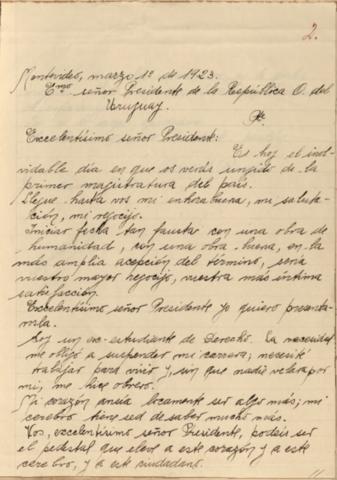 2.
Montevideo, marzo 1º de 1923.
Exmo señor Presidente de la República O. del
Uruguay.
Pte.
Excelentísimo señor Presidente:
Es hoy el inol-
vidable día en que os verás ungido de la
primer magistratura del país.
Llegue hasta vos mi enhorabuena, mi saluta-
ción, mi regocijo.
Iniciar fecha tan fausta con una obra de
humanidad, con una obra buena, en la
más amplia acepción del término, sería
vuestro mayor regocijo, vuestra más íntima
satisfacción.
Excelentísimo señor Presidente yo quiero presenta-
rosla.
Soy un ex-estudiante de Derecho. La necesidad
me obligó a suspender mi carrera; necesité
trabajar para vivir y, sin que nadie velara por
mi, me hice obrero.
Mi corazón ansía locamente ser algo más; mi
cerebro tiene sed de saber mucho más.
Vos, excelentísimo señor Presidente, podéis ser
el pedestal que eleve a este corazón y a este
cerebro, y a este ciudadano.